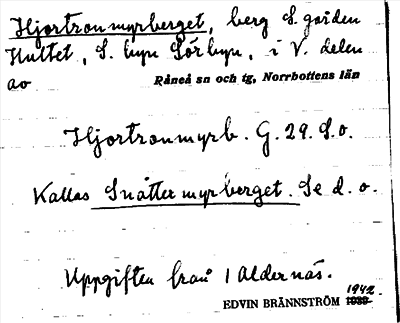 Hjortronmyrberget, berg S. gården
Hultet, S. byn Sörbyn, i V. delen
av Råneå sn och tg, Norrbottens län
Hjortronmyrb. G. 29. S.o.
Kallas Snåttermyrberget. Se d. o.
Uppgiften från 1 Aldernäs.
1942.
EDVIN BRÄNNSTRÖM 1939